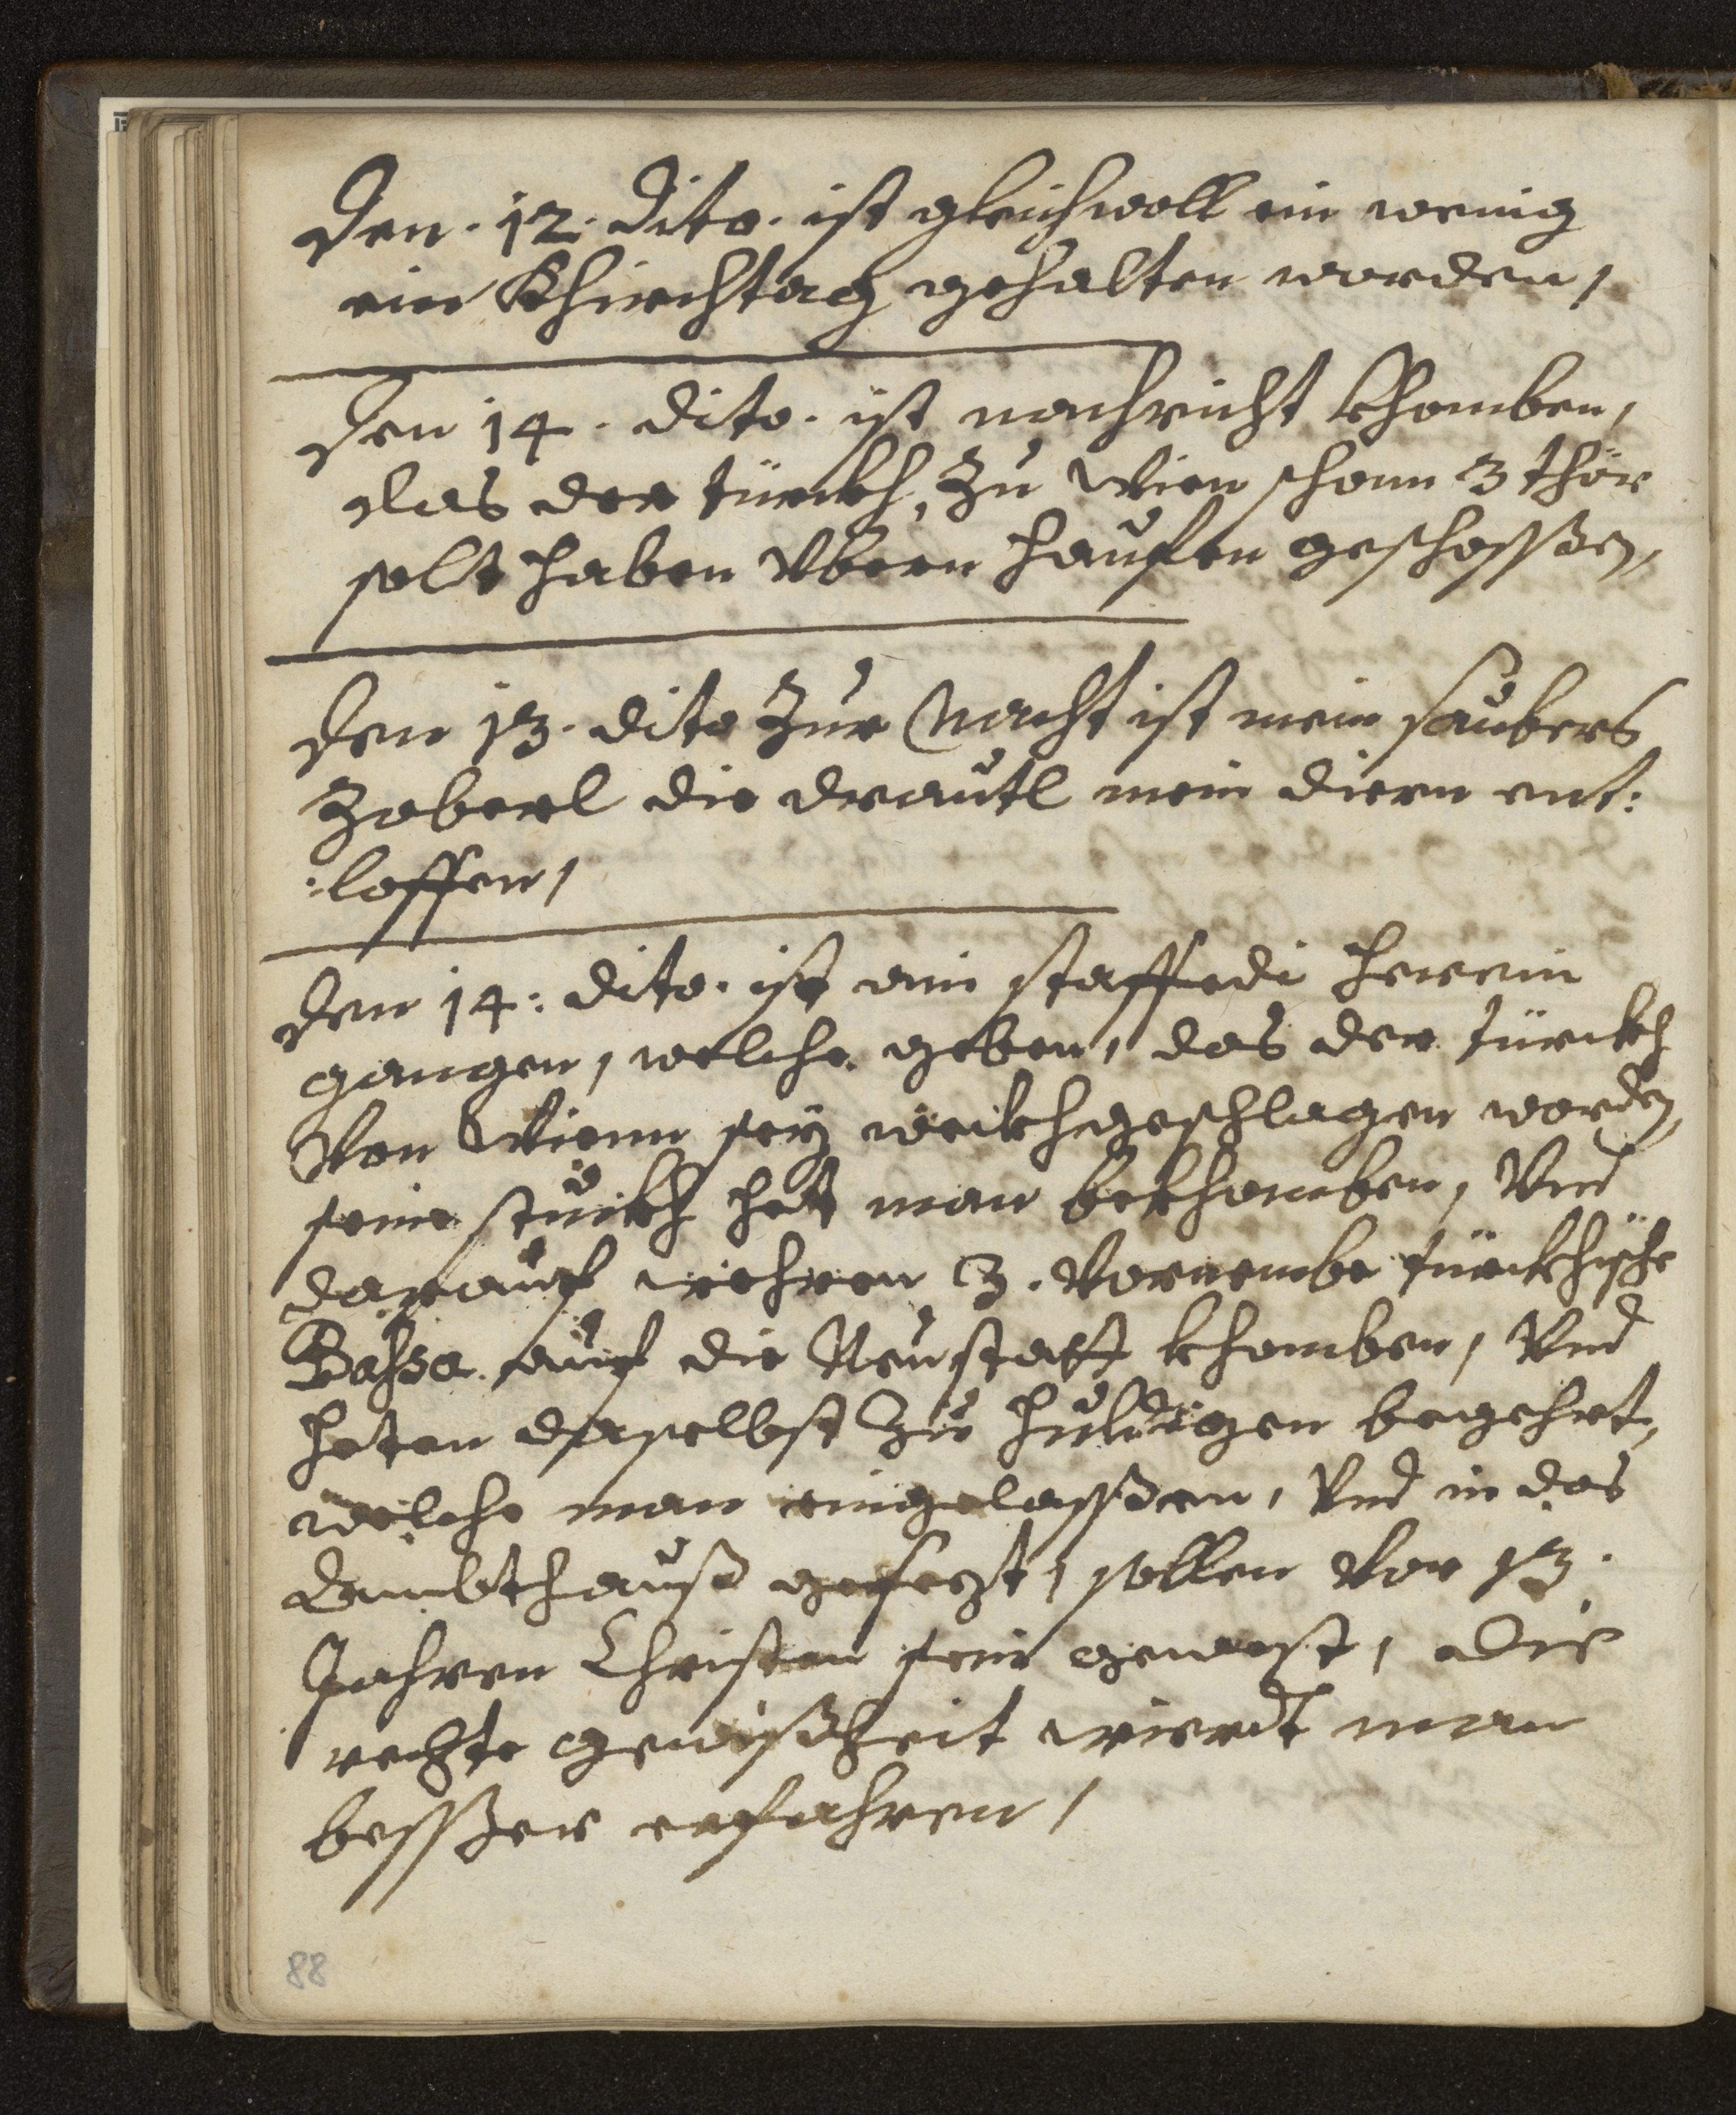 Den. 12. dito. ist gleichwoll ein wenig
ein Khirchtag gehalten worden,
Den 14. dito. ist nachricht khomben,
das der türckh, zu Wien schonn 3 thör
solt haben Vbern hauffen geschossßen,
Den 13. dito zur Nacht ist mein saubers
Zoberl die drautl mein diern ent:
:loffen,
Den 14: dito. ist ain staffedi herein
gangen, welche geben, das der türckh
Von Wienn sey wöckhgeschlagen worden,
seine stückh hat man bekhomben, Vnd
darauf wehren 3. Vornembe türckhische
Bassa auf die Neustatt khomben, Vnd
heten daselbst zu huldigen begehrt,
welche man eingelassßen, Vnd in das
Zambthauß gesezt, sollen Vor 13.
Jahren Christen sein gewest, Die
rechte gewißheit wierdt man
bessßer erfahren,
88